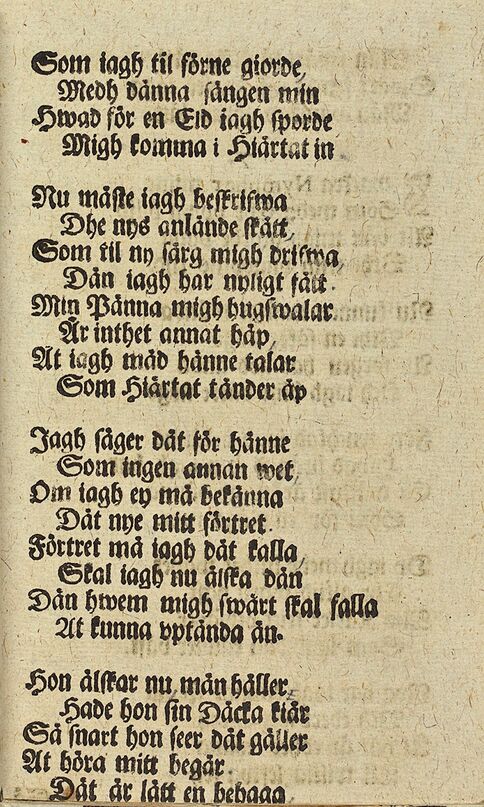 Som iagh til förne giorde,
Medh dänna sången min
Hwad för en Eld iagh sporde
Migh komma i Hiärtat in
Nu måste iagh beskrifwa
Dhe nys anlände skått,
Som til ny sårg migh drifwa
Dän iagh har nyligt fått.
Min Pänna migh hugswalar
Är inthet annat håp,
At iagh mäd hänne talar
Som Hiärtat tänder åp
Jagh säger dät för hänne
Som ingen annan wet,
Om iagh ey må bekänna
Dät nye mitt förtret.
Förtret må iagh dät kalla,
Skal iagh nu älska dän
Dän hwem migh swårt skal falla
At kunna vptända än.
Hon älskar nu män häller,
Hade hon sin Däcka kiär
Så snart hon seer dät gäller
At höra mitt begär
Dät är lätt en behaga